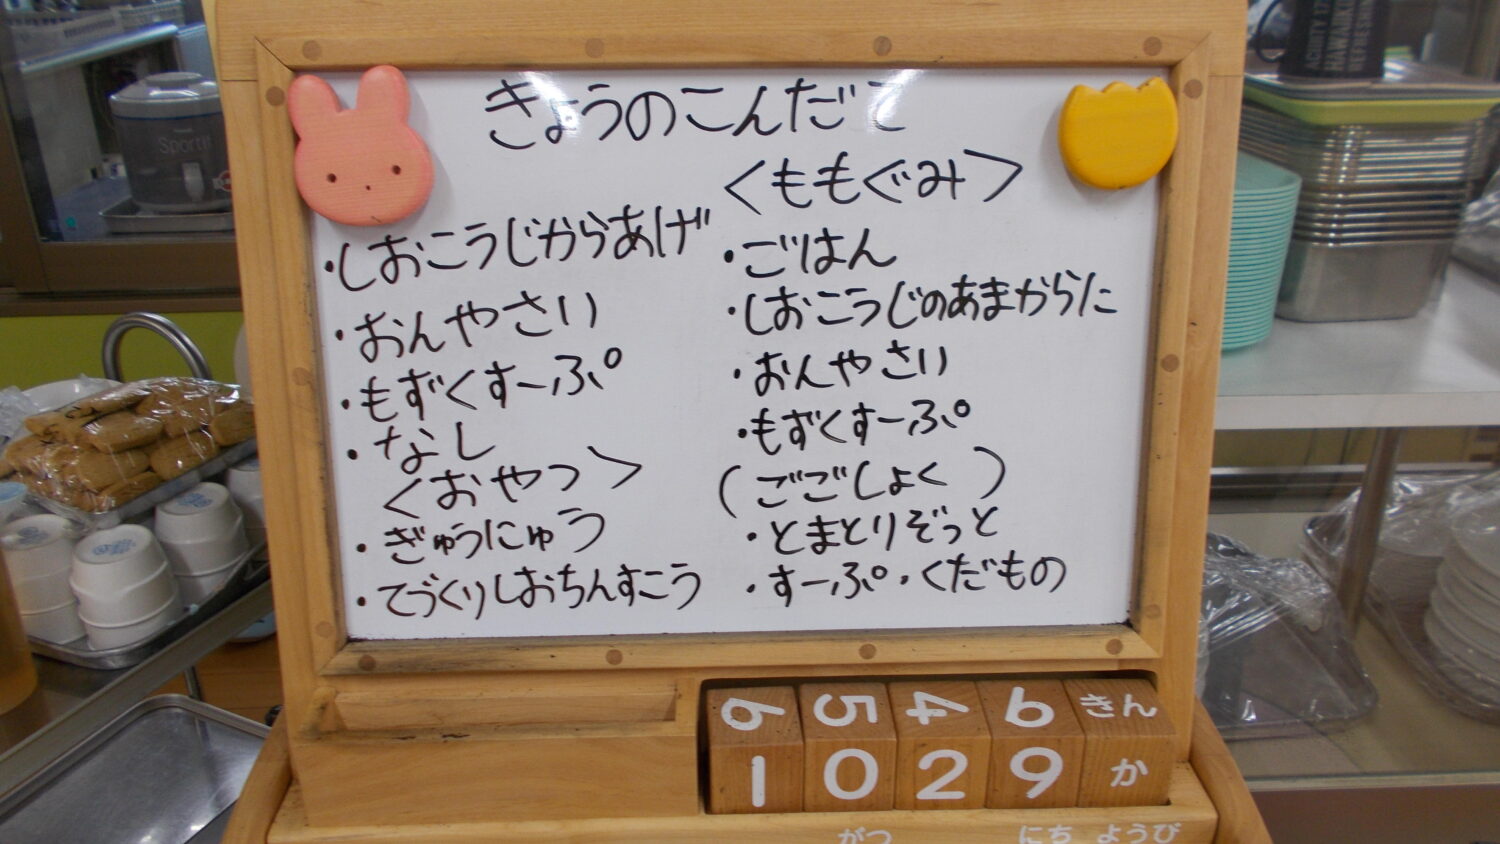 きょうのこんだて
・しおこうじからあげ
・おんやさい
・もずくすーぷ
・なし
＜おやつ＞
・ぎゅうにゅう
・てづくりしおちんすこう
＜ももぐみ＞
・ごはん
・しおこうじのあまからに
・おんやさい
・もずくすーぷ
(ごごしょく)
・とまとりぞっと
・すーぷ・くだもの
6 5 4 6 きん
1 0 2 9 か
がつ にち ようび
Sportif
HAWAII
REFRESHING